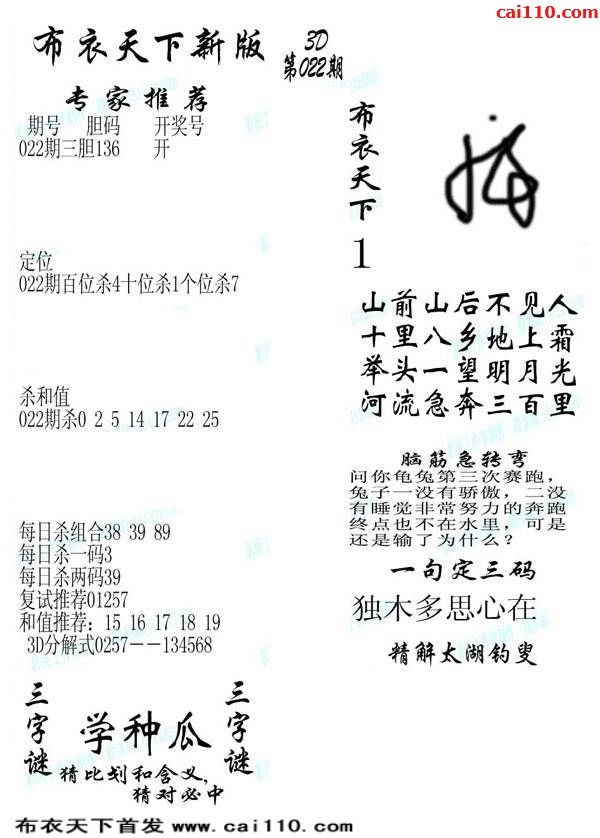 cai110.com
布衣天下新版
3D
第022期
专家推荐
期号 胆码 开奖号
022期三胆136 开
定位
022期百位杀4十位杀1个位杀7
杀和值
022期杀0 2 5 14 17 22 25
每日杀组合38 39 89
每日杀一码3
每日杀两码39
复试推荐01257
和值推荐：15 16 17 18 19
3D分解式0257--134568
三字谜
学种瓜
三字谜
猜比划和含义，
猜对必中
布衣天下
1
山前山后不见人
十里八乡地上霜
举头一望明月光
河流急奔三百里
脑筋急转弯
问你龟兔第三次赛跑，
兔子一没有骄傲，二没
有睡觉非常努力的奔跑
终点也不在水里，可是
还是输了为什么？
一句定三码
独木多思心在
精解太湖钓叟
布衣天下首发 www.cai110.com